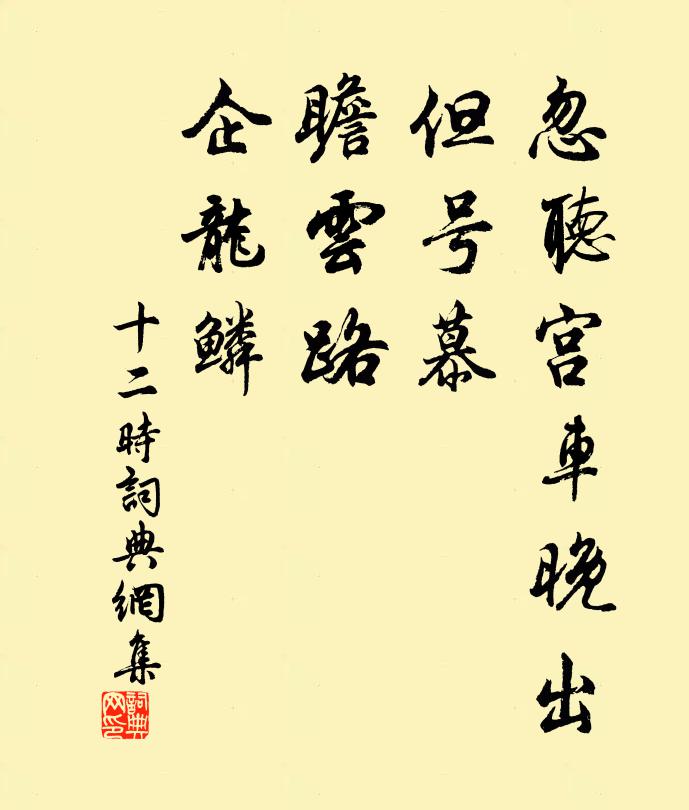 忽聽宮車晚出
但号慕
瞻雲路
企龍鱗
十二時詞典網集
詞典网印